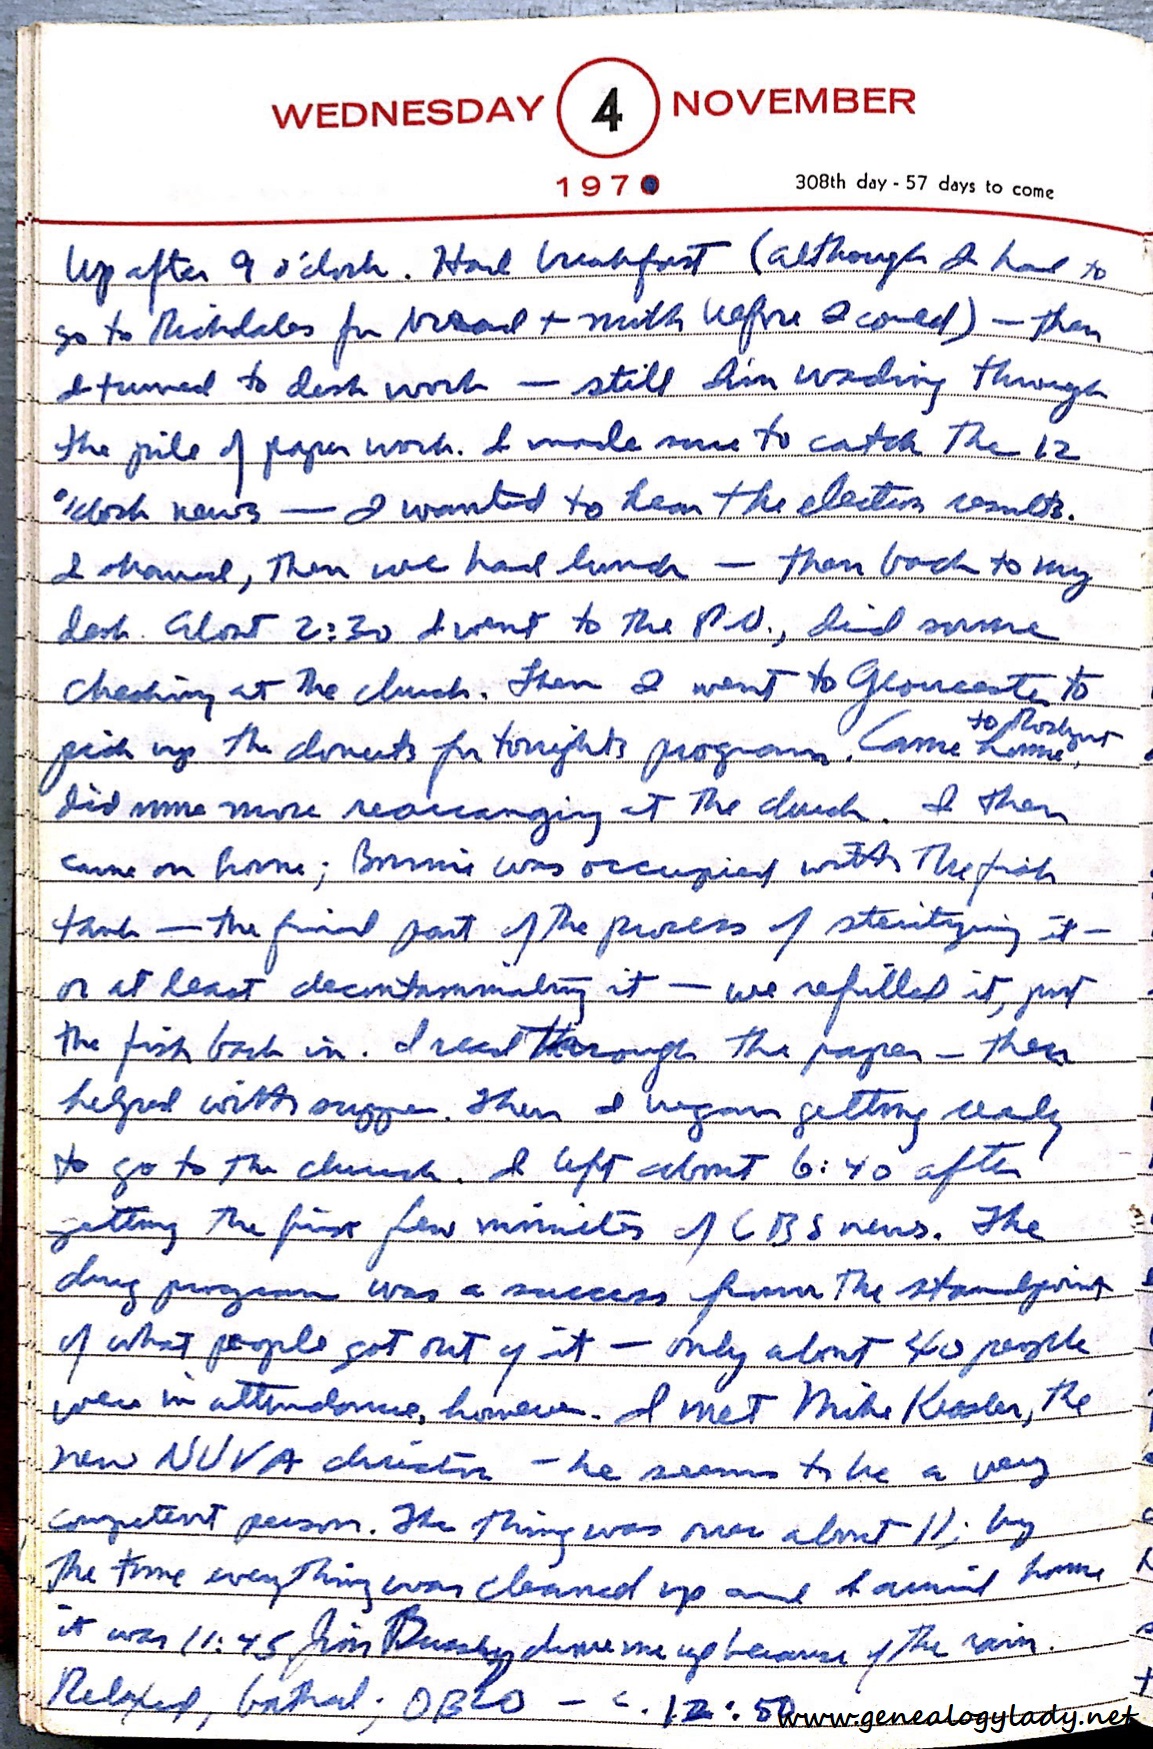 WEDNESDAY 4 NOVEMBER
1970
308th day - 57 days to come
Up after 9 o'clock. Had breakfast (although I had to
go to Richdales for bread + milk before I could) — then
I turned to desk work — still I'm wading through
the pile of paper work. I made sure to catch the 12
o'clock news — I wanted to hear the election results.
I shaved, then we had lunch — then back to my
desk. About 2:30 I went to the P.O., did some
checking at the church. Then I went to Gloucester to
pick up the donuts for tonights program. Came home,
to Rockport
did some more rearranging at the church. I then
came on home; Bonnie was occupied with the fish
tank — the final part of the process of sterilizing it —
or at least decontaminating it — we refilled it, put
the fish back in. I read through the paper — then
helped with supper. Then I began getting ready
to go to the church. I left about 6:40 after
getting the first few minutes of CBS news. The
drug program was a success from the standpoint
of what people got out of it — only about 40 people
were in attendance, however. I met Mike Kessler, the
new NUVA director — he seems to be a very
competent person. The thing was over about 11; by
the time everything was cleaned up and I arrived home
it was 11:45 Jim drove me up because of the rain.
Relaxed, bathed; — c. 12:50
www.genealogylady.net